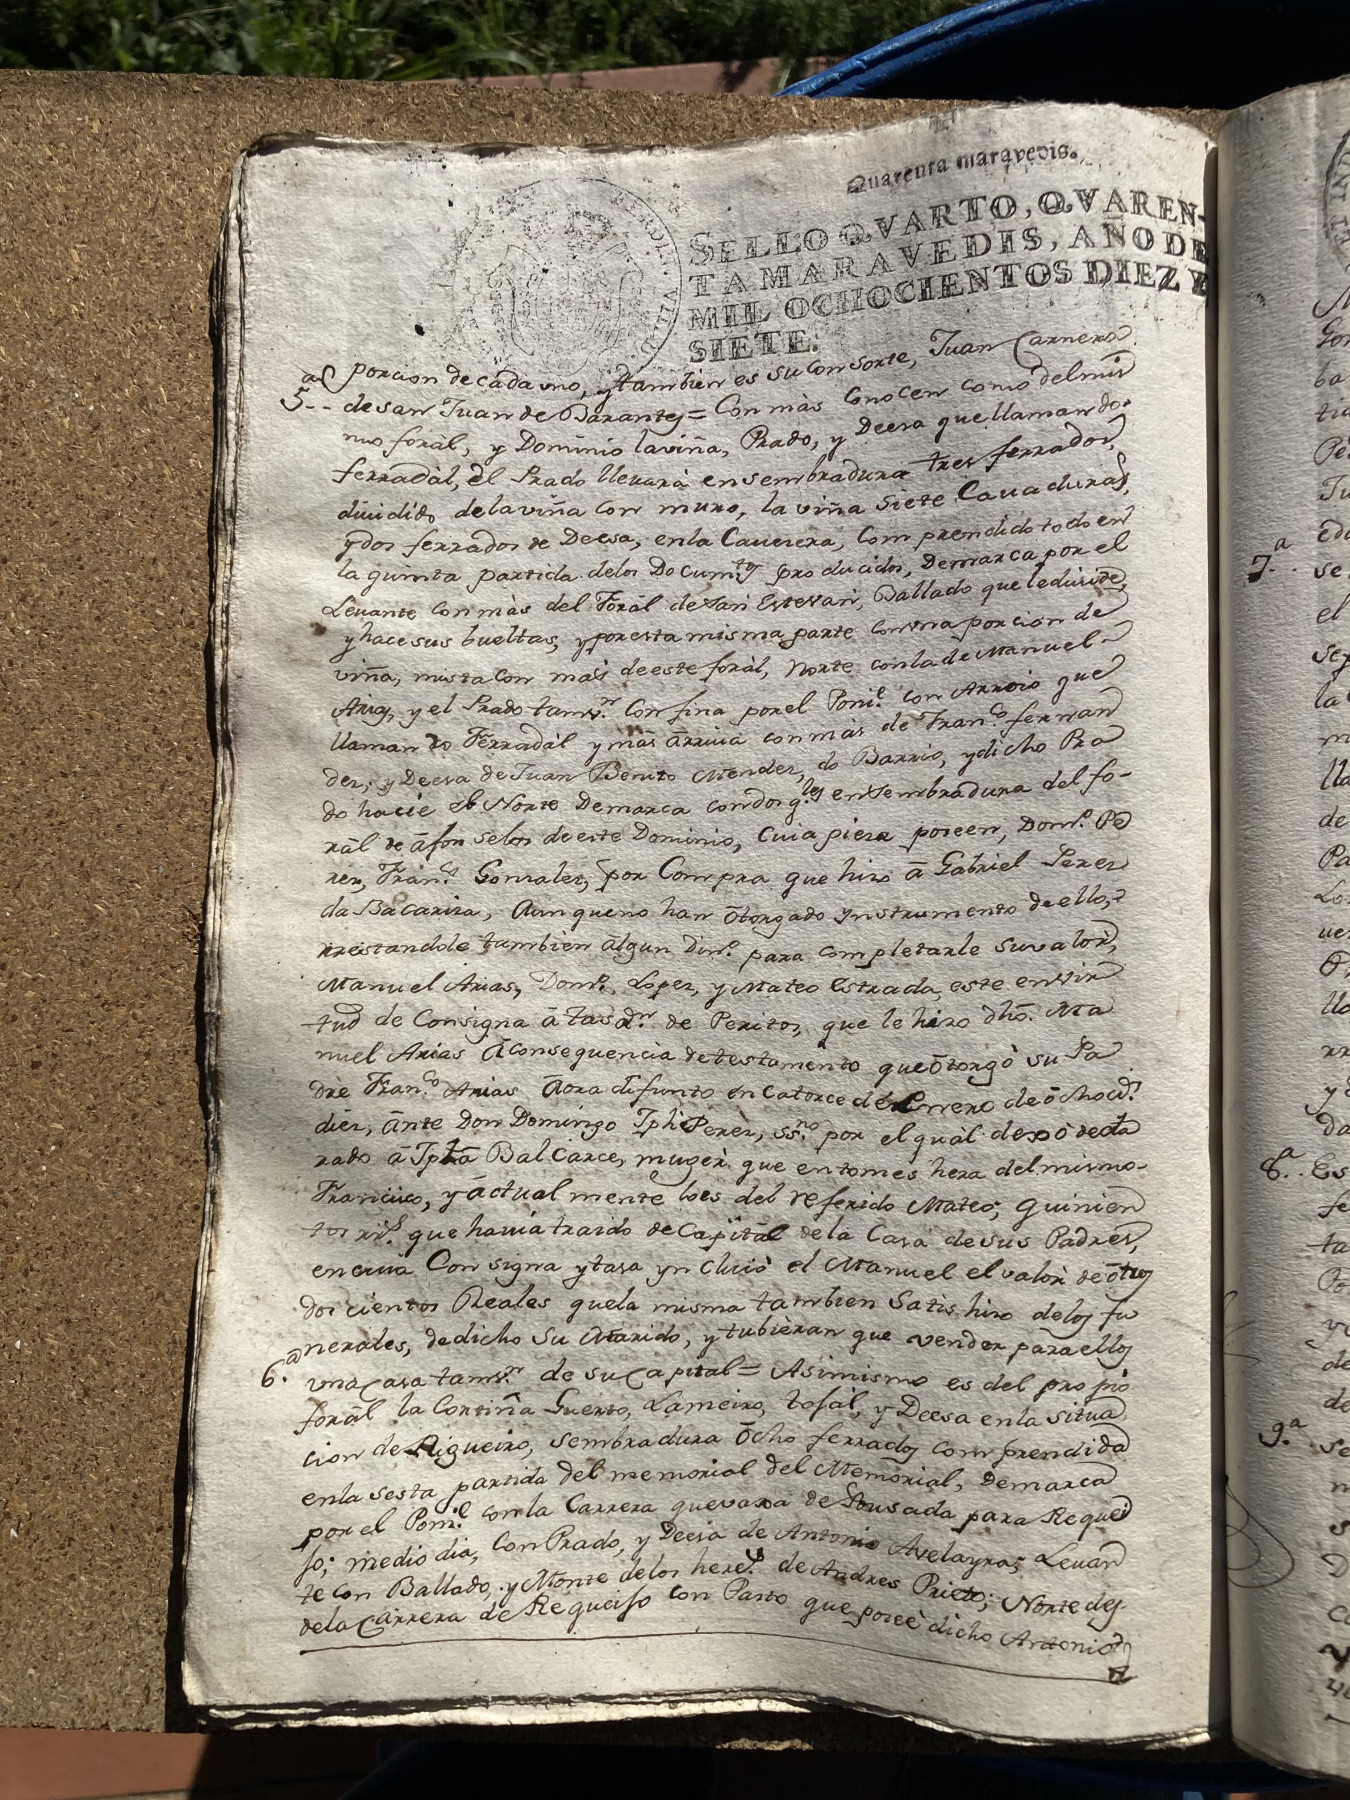 Quarenta maravedis.
FERDIN. VII. D
SELLO QVARTO, QVAREN-
TAMARAVEDIS, AÑO DE
MIL OCHOCIENTOS DIEZ Y
SIETE.
porcion de cada uno, y tambien es su consorte, Juan Carnero
5.ª -- de san Juan de Barantes = Con màs Conocen como del mis
mo forál, y Dominio la viña, Prado, y Deesa que llaman do
ferradàl, el Prado llevarà en sembradura tres ferrados,
dividido de la viña con muro, la viña siete Cavaduras,
y dos ferrados de Deesa, en la Cavecera, Comprendido todo en
la quinta partida delos Documtos producidos, Demarca por el
Levante con màs del Forál de san Estevan, Vallado que le divide,
y hace sus bueltas, y por esta misma parte con una porcion de
viña, mista con màs de este forál, Norte con la de Manuel
Arias, y el Prado tamvn confina por el Ponie con Arroio que
llaman do Ferradàl y màs ārriva con màs de Franco fernan
dez, y Deesa de Juan Benito Mendez, do Barrio, y dicho Pra
do hacie el Norte Demarca con dos qles en sembradura del fo-
rál de āfonselos de este Dominio, Cuia pieza poseen, Domo Pe
rez, Franco Gonzalez, por Compra que hizo ā Gabriel Perez
da Bacariza, Aunque no han ōtorgado ynstrumento de ello,
rrestandole tambien ālgun Dinro para completarle su valor,
Manuel Arias, Domo Lopez, y Mateo Estrada, este en vir
tud de Consigna ā tasaon de Peritos, que le hizo dho Ma
nuel Arias āconsequencia de testamento que ōtorgò su Pa
dre Franco Arias āora difunto en Catorce de Enero de ōchocs
diez, ānte Don Domingo Jph Perez, ssno por el quàl dexò decla
rado ā Jpha Balcarce, muger que entonces hera del mismo
Francisco, y āctualmente loes del referido Mateo; quinien
tos rrs que havia traido de Capitàl de la Casa de sus Padres,
en cuia Consigna y tasa ynCluiò el Manuel el valor de ōtros
dos cientos Reales que la misma tambien Satishizo de los fu
nerales, de dicho su Marido, y tubieran que vender para ellos
6.ª una Casa tamvn de su Capital = Asimismo es del propio
forál la Cortiña Guerto, Lameiro, tofál, y Deesa en la situa
cion de Rigueiro, sembradura ōcho ferrados comprendida
en la sesta partida del memorial del Memorial, Demarca
por el Ponie con la Carrera que vaxa de Pousada para Requei
so; medio dia, Con Prado, y Deesa de Antonio Avelayra; Levan
te con Ballado, y Monte delos heres de Andres Prieto; Norte des
de la Carrera de Requeiso con Pasto que poseè dicho Antonio
7.ª
8.ª Es
9.ª